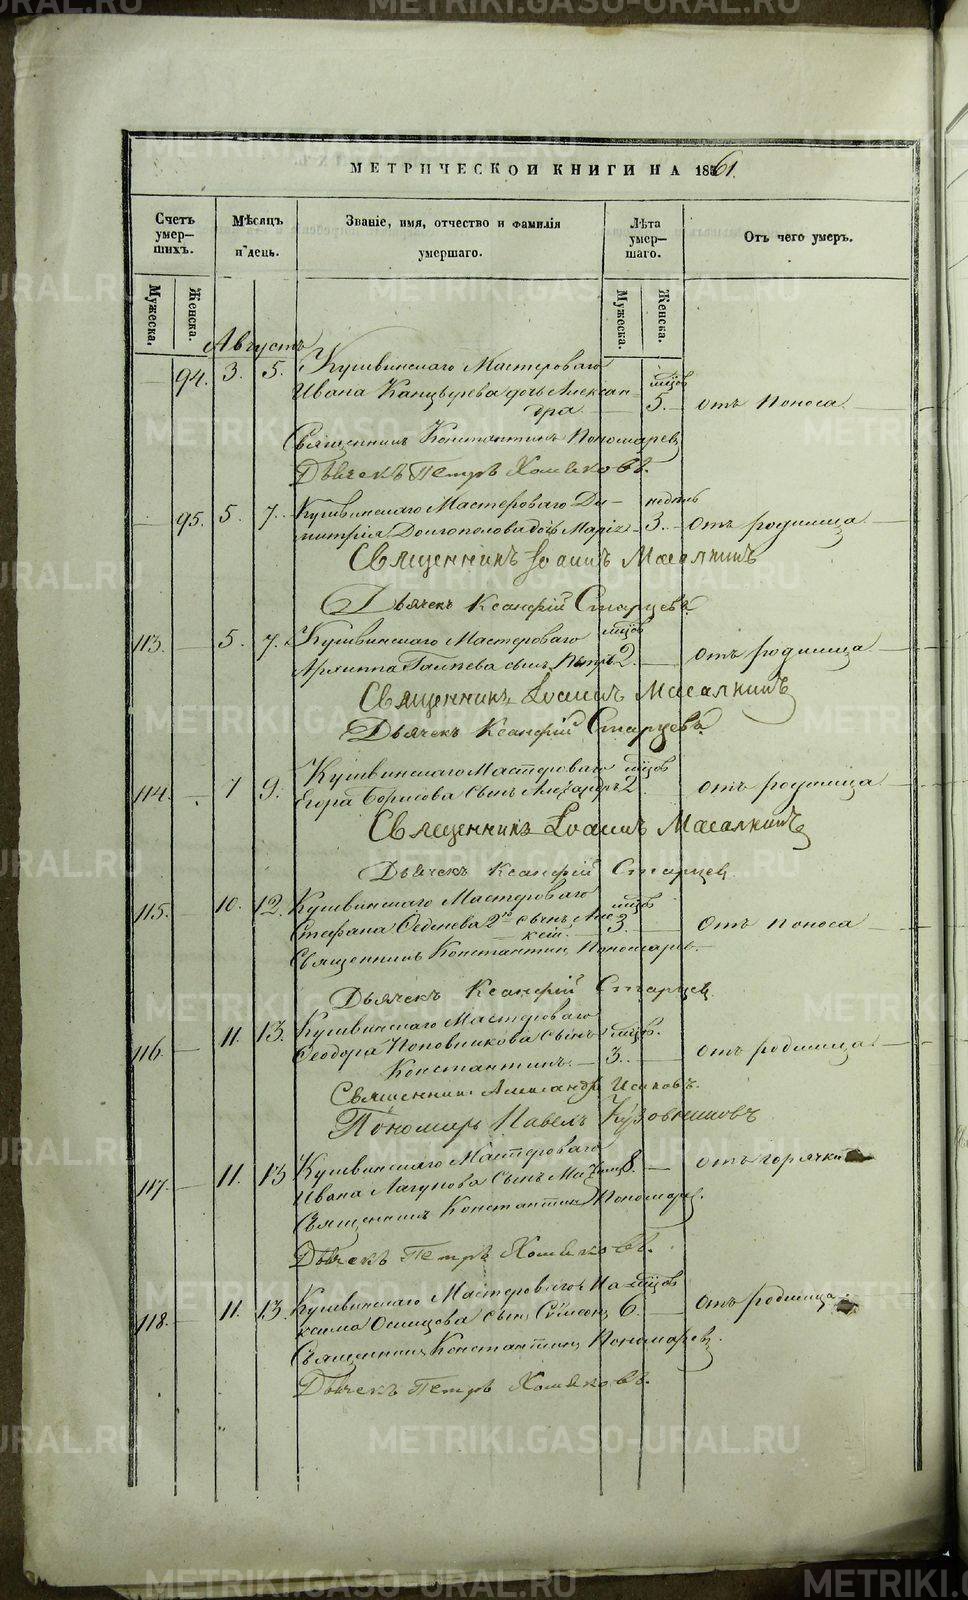 МЕТРИЧЕСКОЙ КНИГИ НА 1861.
Счетъ умершихъ.
Мѣсяцъ и день.
Званіе, имя, отчество и фамилія умершаго.
Лѣта умершаго.
Отъ чего умеръ.
Мужеска. Женска.
Мужеска. Женска.
Августъ
94. 3. 5. Кушвинскаго Мастероваго мцов
Ивана Канцырева дочь Алексан- 5. отъ поноса
дра
Священникъ Константинъ Пономаревъ
Дьячекъ Петръ Хомяковъ.
95. 5. 7. Кушвинскаго Мастероваго Ди- недѣль
митрія Долгополова дочь Марія 3. отъ родимца
Священникъ Іоаннъ Масалкинъ
Дьячекъ Ксанфій Старцевъ
113. 5. 7. Кушвинскаго Мастероваго мцов
Архиппа Галѣева сынъ Петръ 2. отъ родимца
Священникъ Іоаннъ Масалкинъ
Дьячекъ Ксанфій Старцевъ.
114. 7 9. Кушвинскаго Мастероваго мцов
Егора Борисова сынъ 2. отъ родимца
Священникъ Іоаннъ Масалкинъ
Дьячекъ Ксанфій Старцев
115. 10. 12. Кушвинскаго Мастероваго мцов
Стефана 2го сынъ Але- 3. отъ поноса
ксій.
Священникъ Константинъ Пономарев
Дьячекъ Ксанфій Старцев
116. 11. 13. Кушвинскаго Мастероваго
Ѳеодора Половникова сынъ мцов.
Константинъ. 3. отъ родимца
Священник Александръ Исаковъ.
Пономарь Павелъ Кузовниковъ
117. 11. 13 Кушвинскаго Мастероваго отъ горячки
Ивана Лагунова сынъ 8.
Священникъ Константинъ Пономарев.
Дьячекъ Петръ Хомяковъ.
118. 11. 13. Кушвинскаго Мастероваго Ма- мцов
ксима Осинцова сынъ Симеон 6. отъ родимца.
Священник Константинъ Пономарев.
Дьячекъ Петръ Хомяковъ.
METRIKI.GASO-URAL.RU